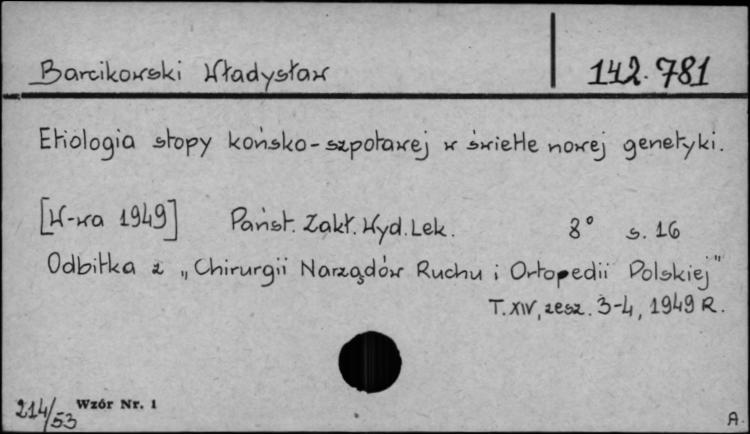 Barcikowski Władysław 142.781
Etiologia stopy końsko-szpotawej w świetle nowej genetyki.
[W-wa 1949] Państ. Zakł. Wyd. Lek. 8° s. 16
Odbitka z „Chirurgii Narządów Ruchu i Ortopedii Polskiej"
T. XIV, zesz. 3-4, 1949 R.
214/53 Wzór Nr. 1
A.